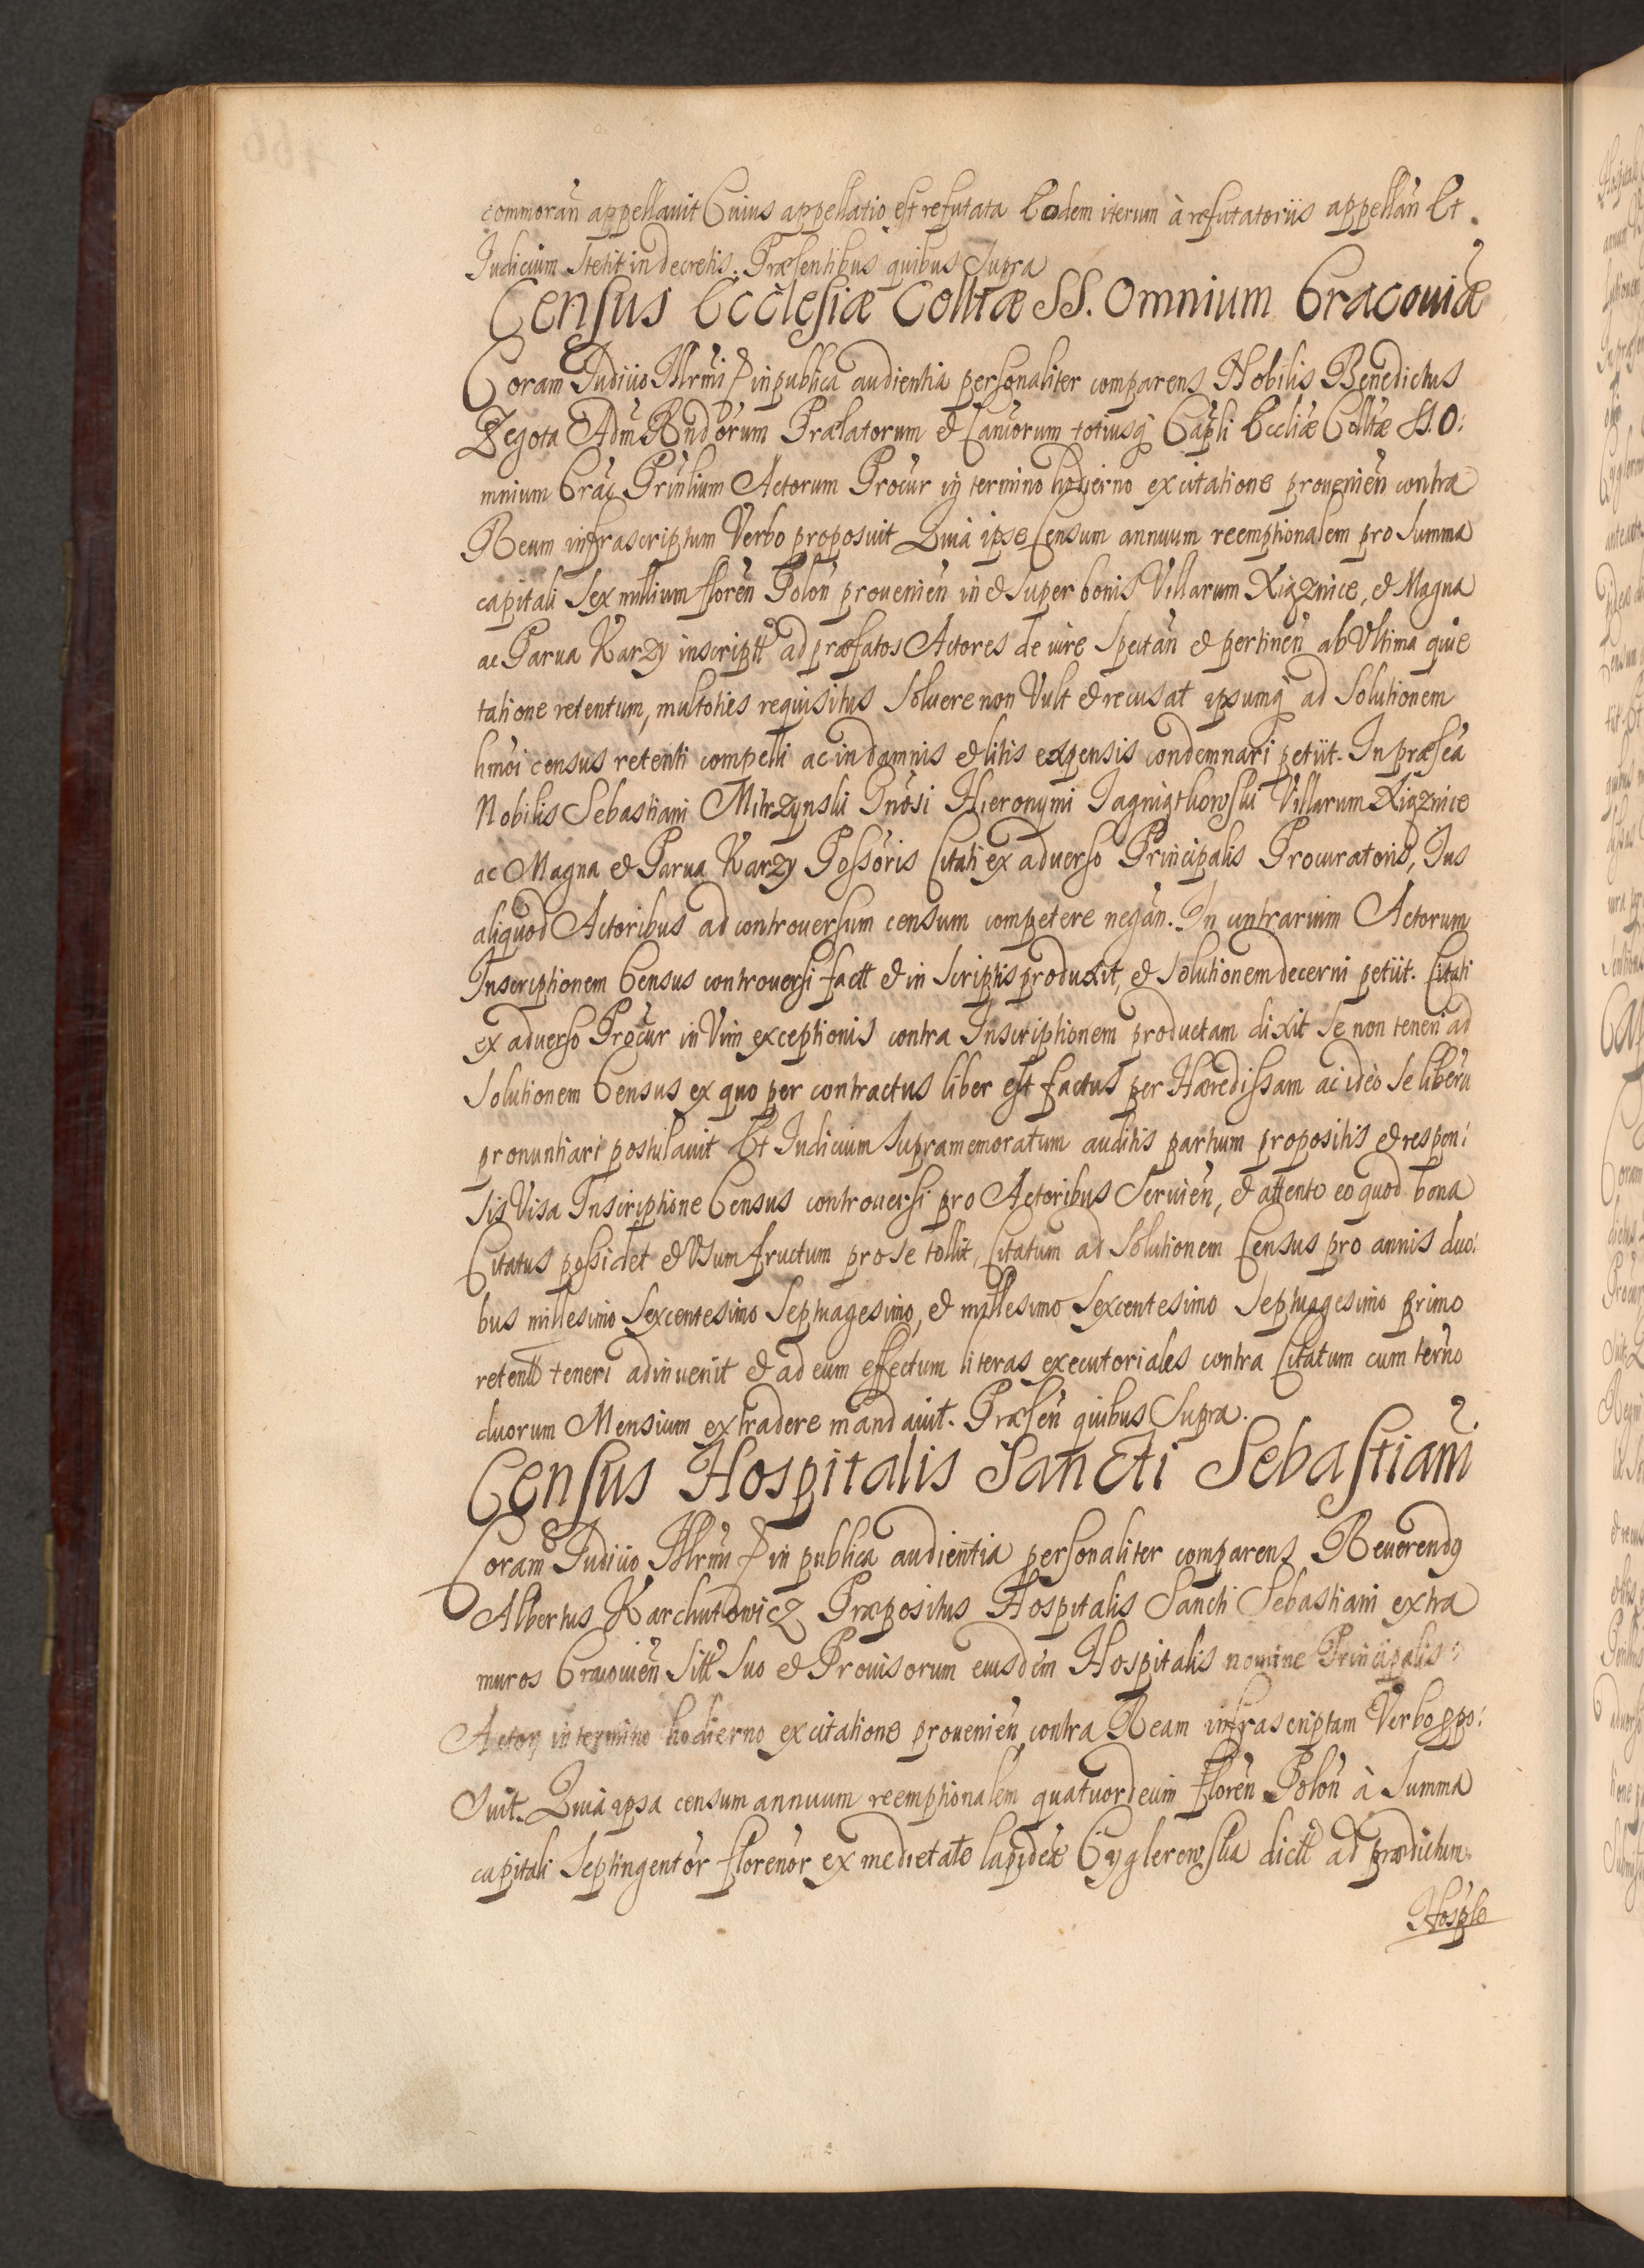 commorañ appellauit Cuius appellatio est refutata Eadem iterum à refutatoriis appellañ Et
Judicium stetit in decretis. Præsentibus quibus supra
Census Ecclesiæ Colltæ SS. Omnium Cracouiæ
Coram Judicio Illrmi &c in publica audientia personaliter comparens Nobilis Benedictus
Zegota Adm̃ Rndorum Prælatorum et Canicorum totiusq Capli Eccliæ Colltæ SS. O:
mnium Crac Prinlium Actorum Procur in termino hodierno ex citatione prouenieñ contra
Reum infrascriptum Verbo proposuit Quia ipse Censum annuum reemptionalem pro summa
capitali sex millium floreñ Poloñ prouenieñ in et super bonis Villarum Xiąznice, et Magna
ac Parua Karzy inscriptt ad præfatos Actores de iure spectañ et pertineñ ab Vltima quie
tatione retentum, multoties requisitus soluere non Vult et recusat ipsumq ad solutionem
hmoi census retenti compelli ac in damnis et litis expensis condemnari petiit. In præseã
Nobilis Sebastiani Mitrzynski Gnosi Hieronymi Jagniątkowski Villarum Xiąznice
ac Magna et Parua Karzy Possoris Citati ex aduerso Principalis Procuratoris, Jus
aliquod Actoribus ad controuersum censum competere negañ. In contrarium Actorum
Inscriptionem Census controuersi factt et in scriptis produxit, et solutionem decerni petiit. Citati
ex aduerso Procur in Vim exceptionis contra Inscriptionem productam dixit se non teneri ad
solutionem Census ex quo per contractus liber est factus per Hæredissam ac ideò se liberũ
pronuntiari postulauit Et Judicium supramemoratum auditis partium propositis et respon:
sis Visa Inscriptione Census controuersi pro Actoribus seruieñ, et attento eo quod bona
Citatus possidet et Vsumfructum pro se tollit, Citatum ad solutionem Census pro annis duo:
bus millesimo sexcentesimo septuagesimo, et millesimo sexcentesimo septuagesimo primo
retentt teneri adinuenit et ad eum effectum literas executoriales contra Citatum cum terno
duorum Mensium extradere mandauit. Præseñ quibus supra.
Census Hospitalis Sancti Sebastiani
Coram Judicio Illrmi &c in publica audientia personaliter comparens Reuerendq
Albertus Karchutowicz Præpositus Hospitalis Sancti Sebastiani extra
muros Cracouieñ sitt suo et Prouisorum eiusdem Hospitalis nomine Principalis:
Actor in termino hodierno ex citatione prouenieñ contra Ream infrascriptam Verbo ppo:
suit. Quia ipsa censum annuum reemptionalem quatuordecim floreñ Poloñ à summa
capitali septingentor florenor ex medietate lapideæ Cyglerowska dictt ad prædictum
Hosple